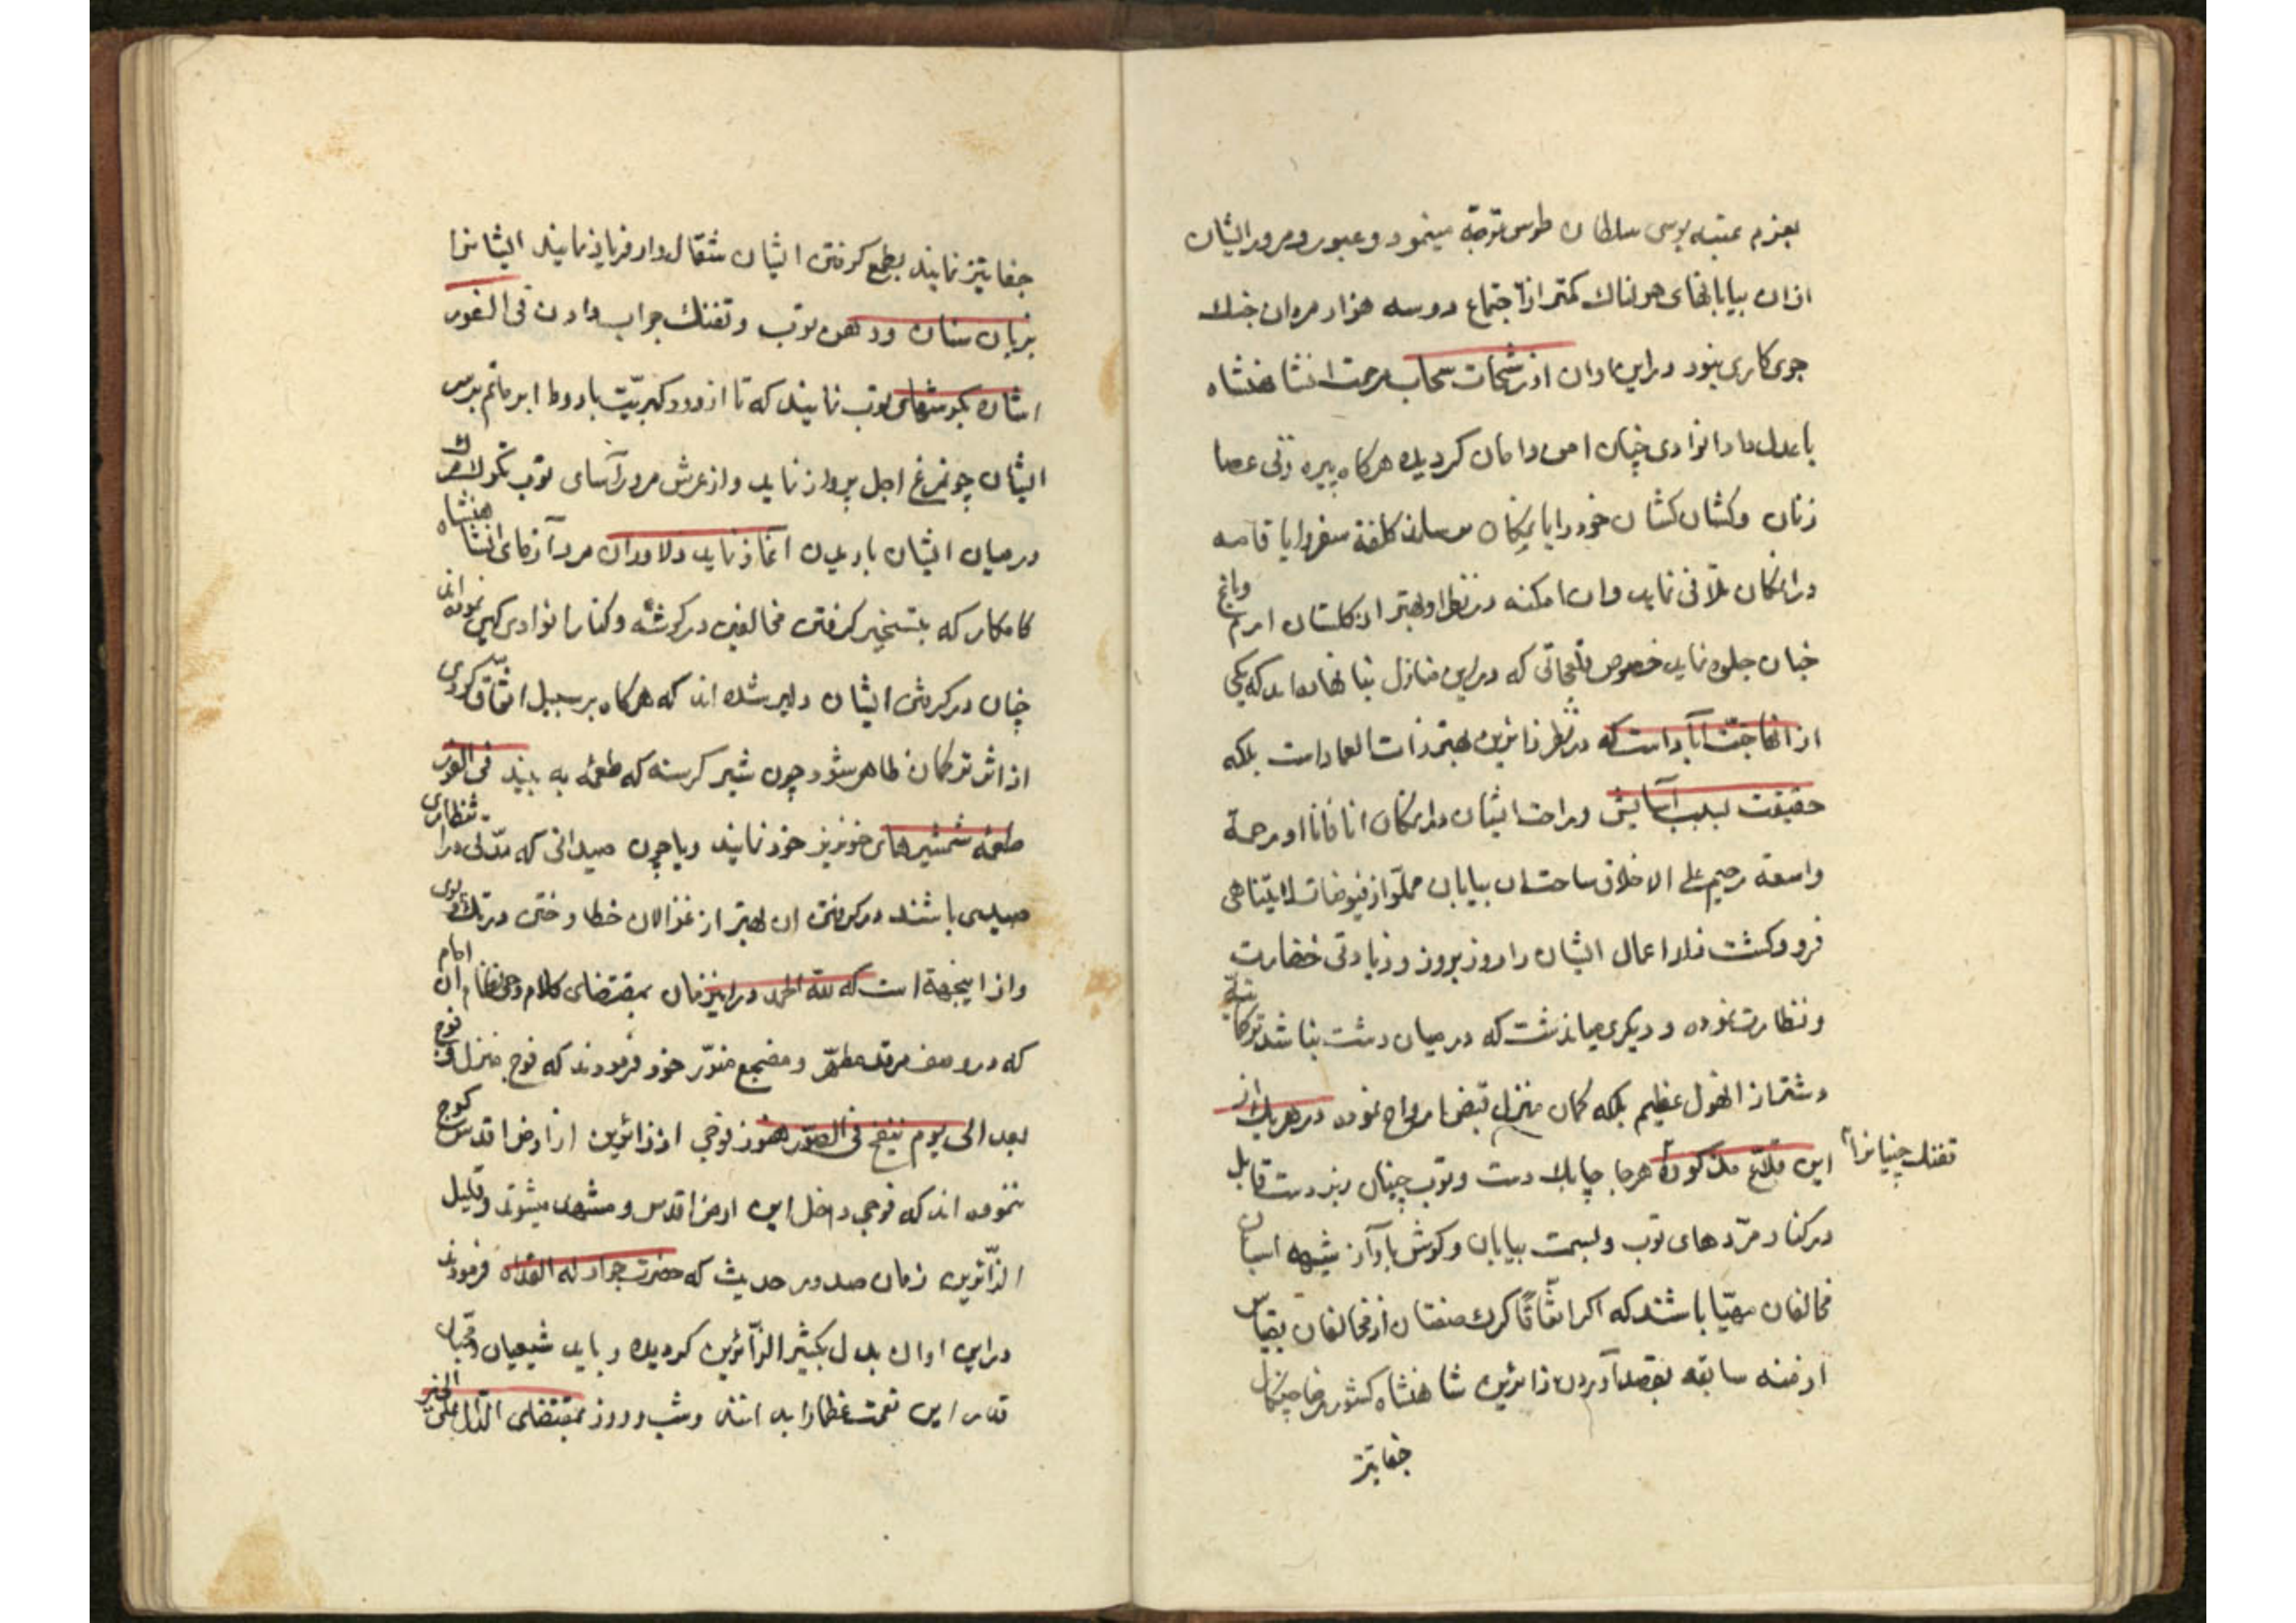 بعزم عتبه بوسی سلطان طوس توجّه مینمود و عبور و مرور ایشان
ازان بیابانهای هولناك کمتر از اجتماع دو سه هزار مردان جنك
جوی کاری نبود در این اوان از رشحات سحاب مرحمت انشاهنشاه
با عدل و داد انوادی چنان امن و امان کردیده هرکاه پیره زنی عصا
زنان و کشان کشان خود را بانمکان میرساند کلفة سفر را باقامه
درانمکان تلافی نماید و ان امکنه در نظر او بهتر از کلستان ارم و باغ
جنان جلوه نماید خصوص قلعجاتی که در این منازل بنا نهاده اند که یکی
از انها جنّت آباد است که در نظر زائرین بهتر ذات العماد است بلکه
حقیقت بسبب آسایش و راحت ایشان درانمکان انا فانا او رحمة
واسعة رحیم علی الاطلاق ساحت ان بیابان مملوّ از فیوضات لایتناهی
فرو و کشت زار اعمال ایشان را روز بروز و زیادتی خضارت
و نظارت نموده و دیکری میاندشت که در میان دشت بنا شد ترکمانیّه
دشتمراز الهول عظیم بلکه کمان منزل قبض ارواح نموده در هریك از
این قلاع مذکوره هرجا چابك دست و توپ چیان زبردست قابل
تفنك چیانرا
در کنار مرّدهای توپ و بسمت بیابان و کوش باوآز شیهه اسبان
مخالفان مهیّا باشند که اکر اتّفاقًا کرك صفتان از مخالفان بقیاس
ازمنه سابقه بقصد آوردن زائرین شاهنشاه کشور رضا چنکال
جفا تیز
جفا تیز نمایند بطمع کرفتن ایشان شقال وار فریاد نمایند ایشانرا
بزبان سنان و دهن توپ و تفنك جواب دادن فی الفور
اشاره بکوشهای توپ نمایند که تا از دود کبریّت باروط ابر ماتم بر سر
ایشان چونمرغ اجل پرواز نماید و از غرش مرورآسای توپ تکولات مرك
در میان ایشان باریدن آغاز نماید دلاوران مردآزمای انشاهنشاه
کامکار که بتسخیر کرفتن مخالفین در کوشه و کنار انوادی کمین نموده اند
چنان در کرفتن ایشان دلیر شده اند که هرکاه بر سبیل اتّفاق کردی
از اثر ترکمان ظاهر شود چون شیر کرسنه که طعمه به بیند فی الفور
طعمه شمشیرهای خونریز خود نمایند و یا چون صیدانی که مدّتی در انتظار
صیدی باشند در کرفتن ان بهتر از غزالان خطا و ختن در تك و پوی
و از اینجهة است که للّه الحمد در اینزمان بمقتضای کلام وحی نظام ان امام
که در وصف مرقد مطهّر و مضجع منوّر خود فرمودند که فوج منزل فوج
بعد الی یوم ینفخ فی الصّور هنوز فوجی از زائرین از ارض اقدس کوچ
ننموده اند که فوجی داخل این ارض اقدس و مشهد میشوند و قلیل
الزّائرین زمان صدور حدیث که حضرت جواد له الفداه فرمودند
در این اوان بدل بکثیر الزّائرین کردیده و باید شیعیان و محبّان
قدر این نعمت عظما را بدانند و شب و روز بمقتضای الدّال علی الخیر